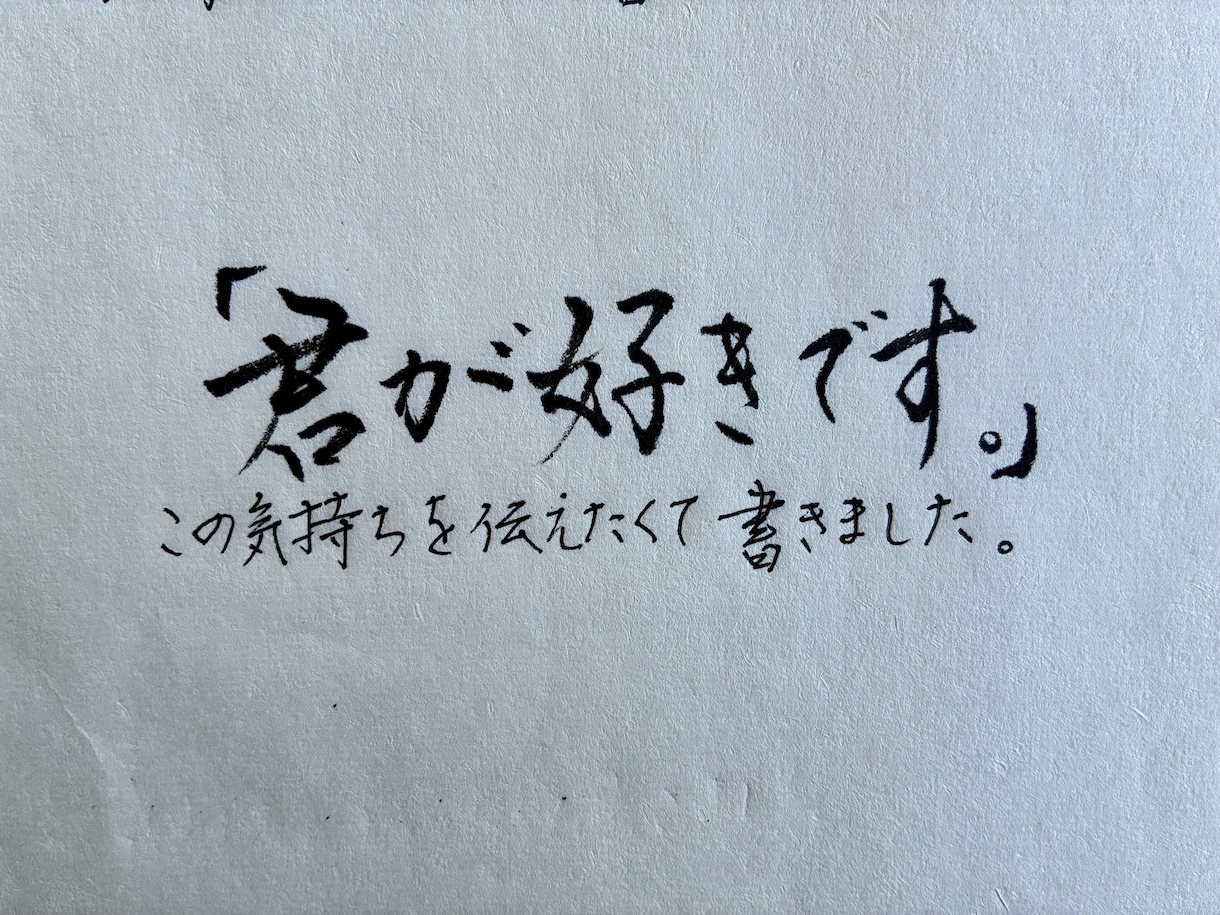 「君が好きです。」
この気持ちを伝えたくて書きました。